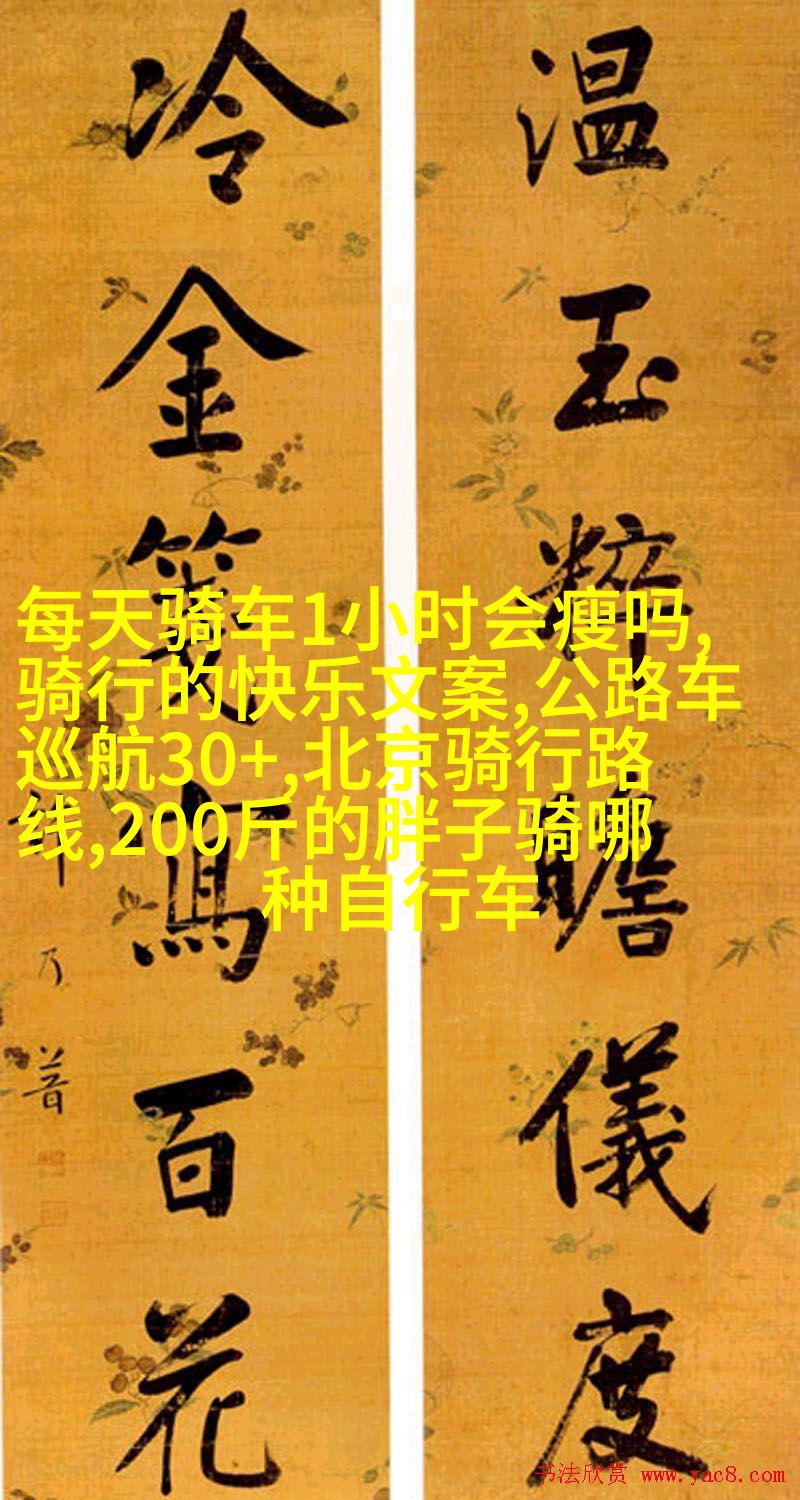 温玉粹瞻儀度
冷金箋寫百花
乃普
每天骑车1小时会瘦吗,
骑行的快乐文案,公路车
巡航30+,北京骑行路
线,200斤的胖子骑哪
种自行车
书法欣赏 www.yac8.com